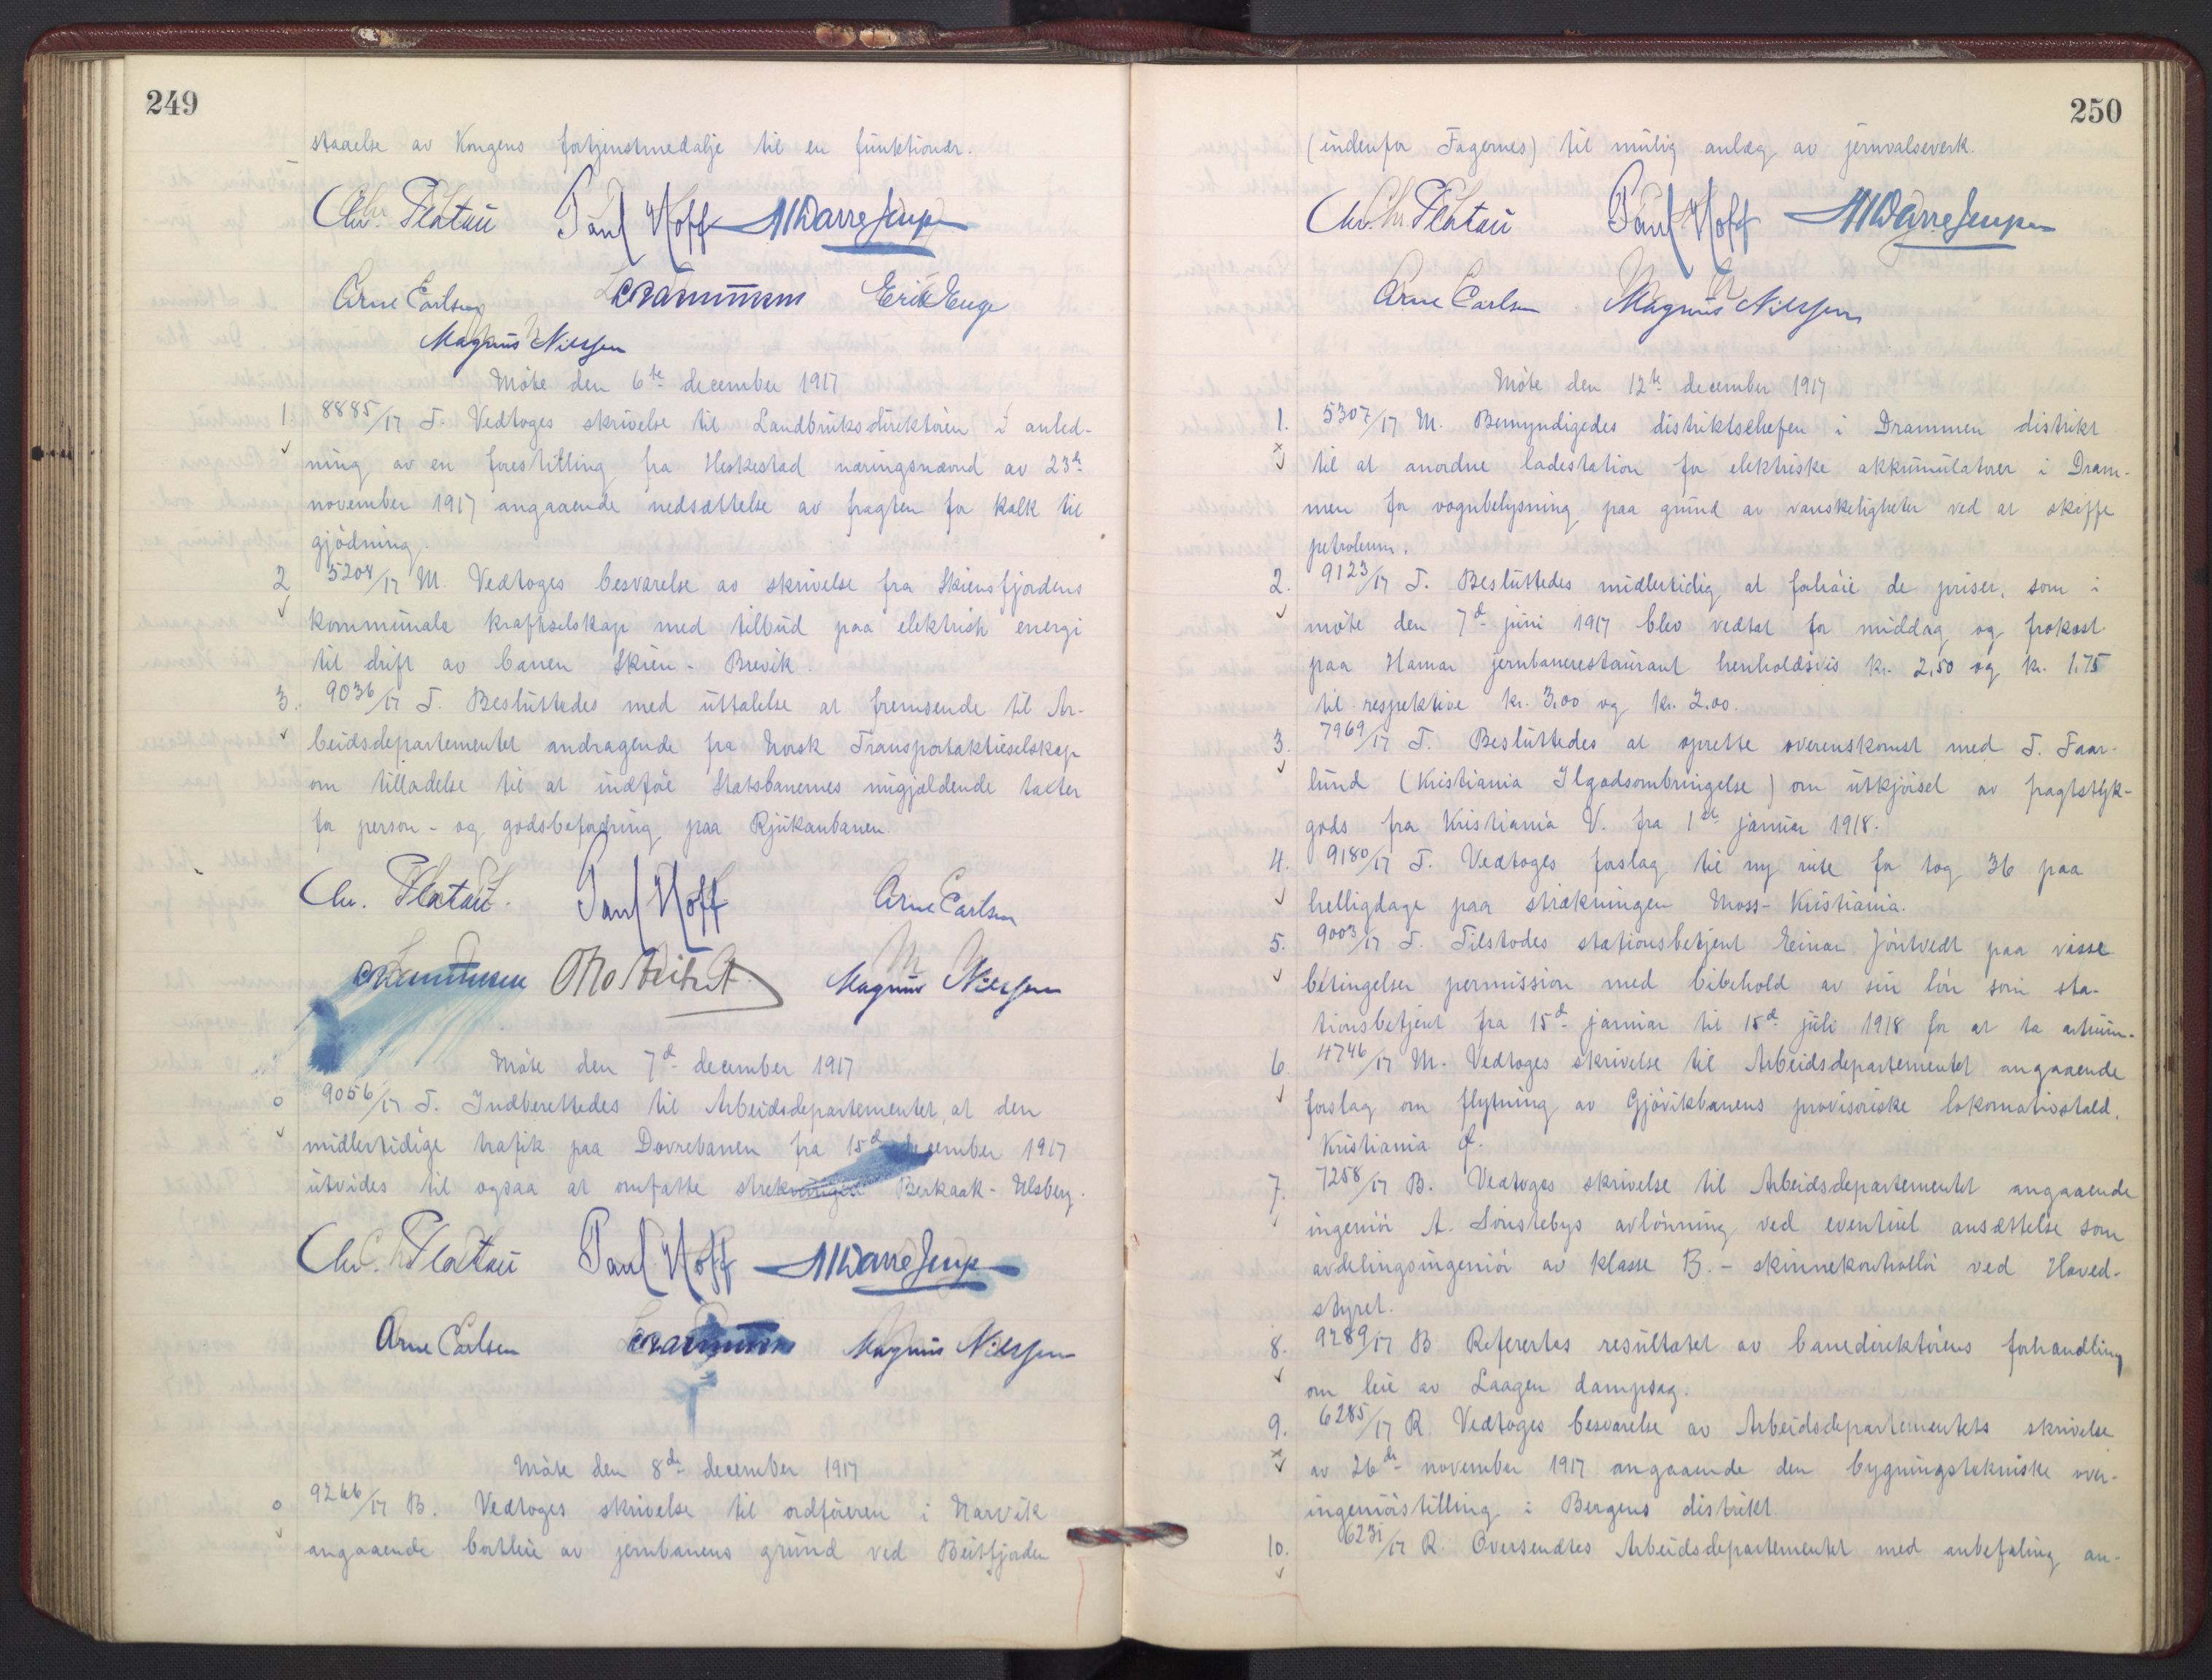 249
staaelse av Kongens fortjenstmedalje til en funktionær.
Chr. Platou Paul Hoff
Arne Carlsen C Rasmussen Erik Enge
Magnus Nilssen
Møte den 6te december 1917
1. 8885/17 T. Vedtoges skrivelse til Landbruksdirektøren i anled-
ning av en forestilling fra Heskestad næringsnævnd av 23de
november 1917 angaaende nedsættelse av fragten for kalk til
gjødning.
2 5208/17 M. Vedtoges besvarelse av skrivelse fra Skiensfjordens
kommunale kraftselskap med tilbud paa elektrisk energi
til drift av banen Skien - Brevik.
3. 9036/17 T. Besluttedes med uttalelse at fremsende til Ar-
beidsdepartementet andragende fra Norsk Transportaktieselskap
om tilladelse til at indføie Statsbanernes nugjældende takter
for person- og godsbefordring paa Rjukanbanen.
Chr. Platou. Paul Hoff Arne Carlsen
C Rasmussen Magnus Nilssen
Møte den 7de december 1917
9056/17 T. Indberettedes til Arbeidsdepartementet, at den
midlertidige trafik paa Dovrebanen fra 15de december 1917
utvides til ogsaa at omfatte strekningen Berkaak - Ulsberg.
Chr. Platou Paul Hoff
Arne Carlsen C Rasmussen Magnus Nilssen
Møte den 8de december 1917
9266/17 B. Vedtoges skrivelse til ordføreren i Narvik
angaaende bortleie av jernbanens grund ved Beisfjorden
250
(indenfor Fagernes) til mulig anlæg av jernvalseverk.
Chr. Platou Paul Hoff
Arne Carlsen Magnus Nilssen
Møte den 12te december 1917
1. 5307/17 M. Bemyndigedes distriktschefen i Drammen distrikt
til at anordne ladestation for elektriske akkumulatorer i Dram-
men for vognbelysning paa grund av vanskeligheter ved at skaffe
petroleum.
2. 9123/17 T. Besluttedes midlertidig at forhøie de priser, som i
møte den 7de juni 1917 blev vedtat for middag og frokost
paa Hamar jernbanerestaurant henholdsvis kr. 2,50 og kr. 1.75
til respektive kr. 3,00 og kr. 2.00.
3. 7969/17 T. Besluttedes at oprette overenskomst med T. Faar-
lund (Kristiania Ilgodsombringelse) om utkjørsel av fragtstyk-
gods fra Kristiania V. fra 1ste januar 1918.
4. 9180/17 T. Vedtoges forslag til ny rute for tog 36 paa
helligdage paa strækningen Moss - Kristiania.
5. 9003/17 T. Tilstodes stationsbetjent Einar Jøntvedt paa visse
betingelser permission med bibehold av sin løn som sta-
tionsbetjent fra 15de januar til 15de juli 1918 for at ta artium.
6. 4746/17 M. Vedtoges skrivelse til Arbeidsdepartementet angaaende
forslag om flytning av Gjøvikbanens provisoriske lokomotivstald.
Kristiania Ø.
7. 7258/17 B. Vedtoges skrivelse til Arbeidsdepartementet angaaende
ingeniør A. Sønstebys avlønning ved eventuel ansættelse som
avdelingsingeniør av klasse B. - skinnekontrollør ved Hoved-
styret.
8. 9289/17 B. Referertes resultatet av banedirektørens forhandling
om leie av Laagen dampsag.
9. 6285/17 R. Vedtoges besvarelse av Arbeidsdepartementets skrivelse
av 26de november 1917 angaaende den bygningstekniske over-
ingeniørstilling i Bergens distrikt.
10. 6231/17 R. Oversendtes Arbeidsdepartementet med anbefaling an-